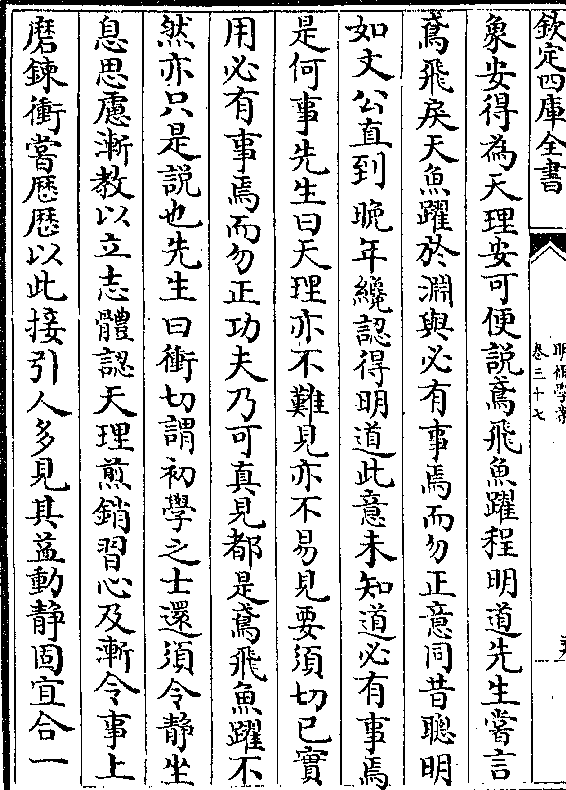 欽定四庫全書
明儒學案
卷三十七
象安得為天理安可便説鳶飛魚躍程明道先生嘗言
鳶飛戾天魚躍於淵與必有事焉而勿正意同昔聰明
如文公直到晚年纔認得明道此意未知道必有事焉
是何事先生曰天理亦不難見亦不易見要須切已實
用必有事焉而勿正功夫乃可真見都是鳶飛魚躍不
然亦只是説也先生曰衝切謂初學之士還須令静坐
息思慮漸教以立志體認天理煎銷習心及漸令事上
磨鍊衝嘗歴歴以此接引人多見其益動静固宜合一